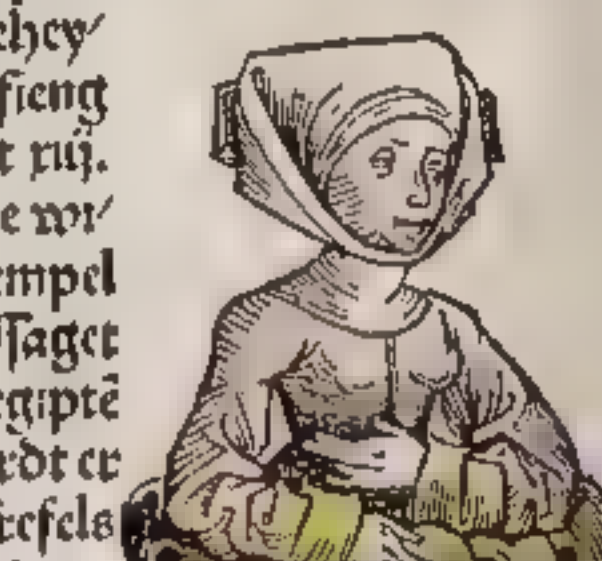 chey/
fieng
t xiij.
e wi/
empel
ſſaget
egiptē
edt er
efels